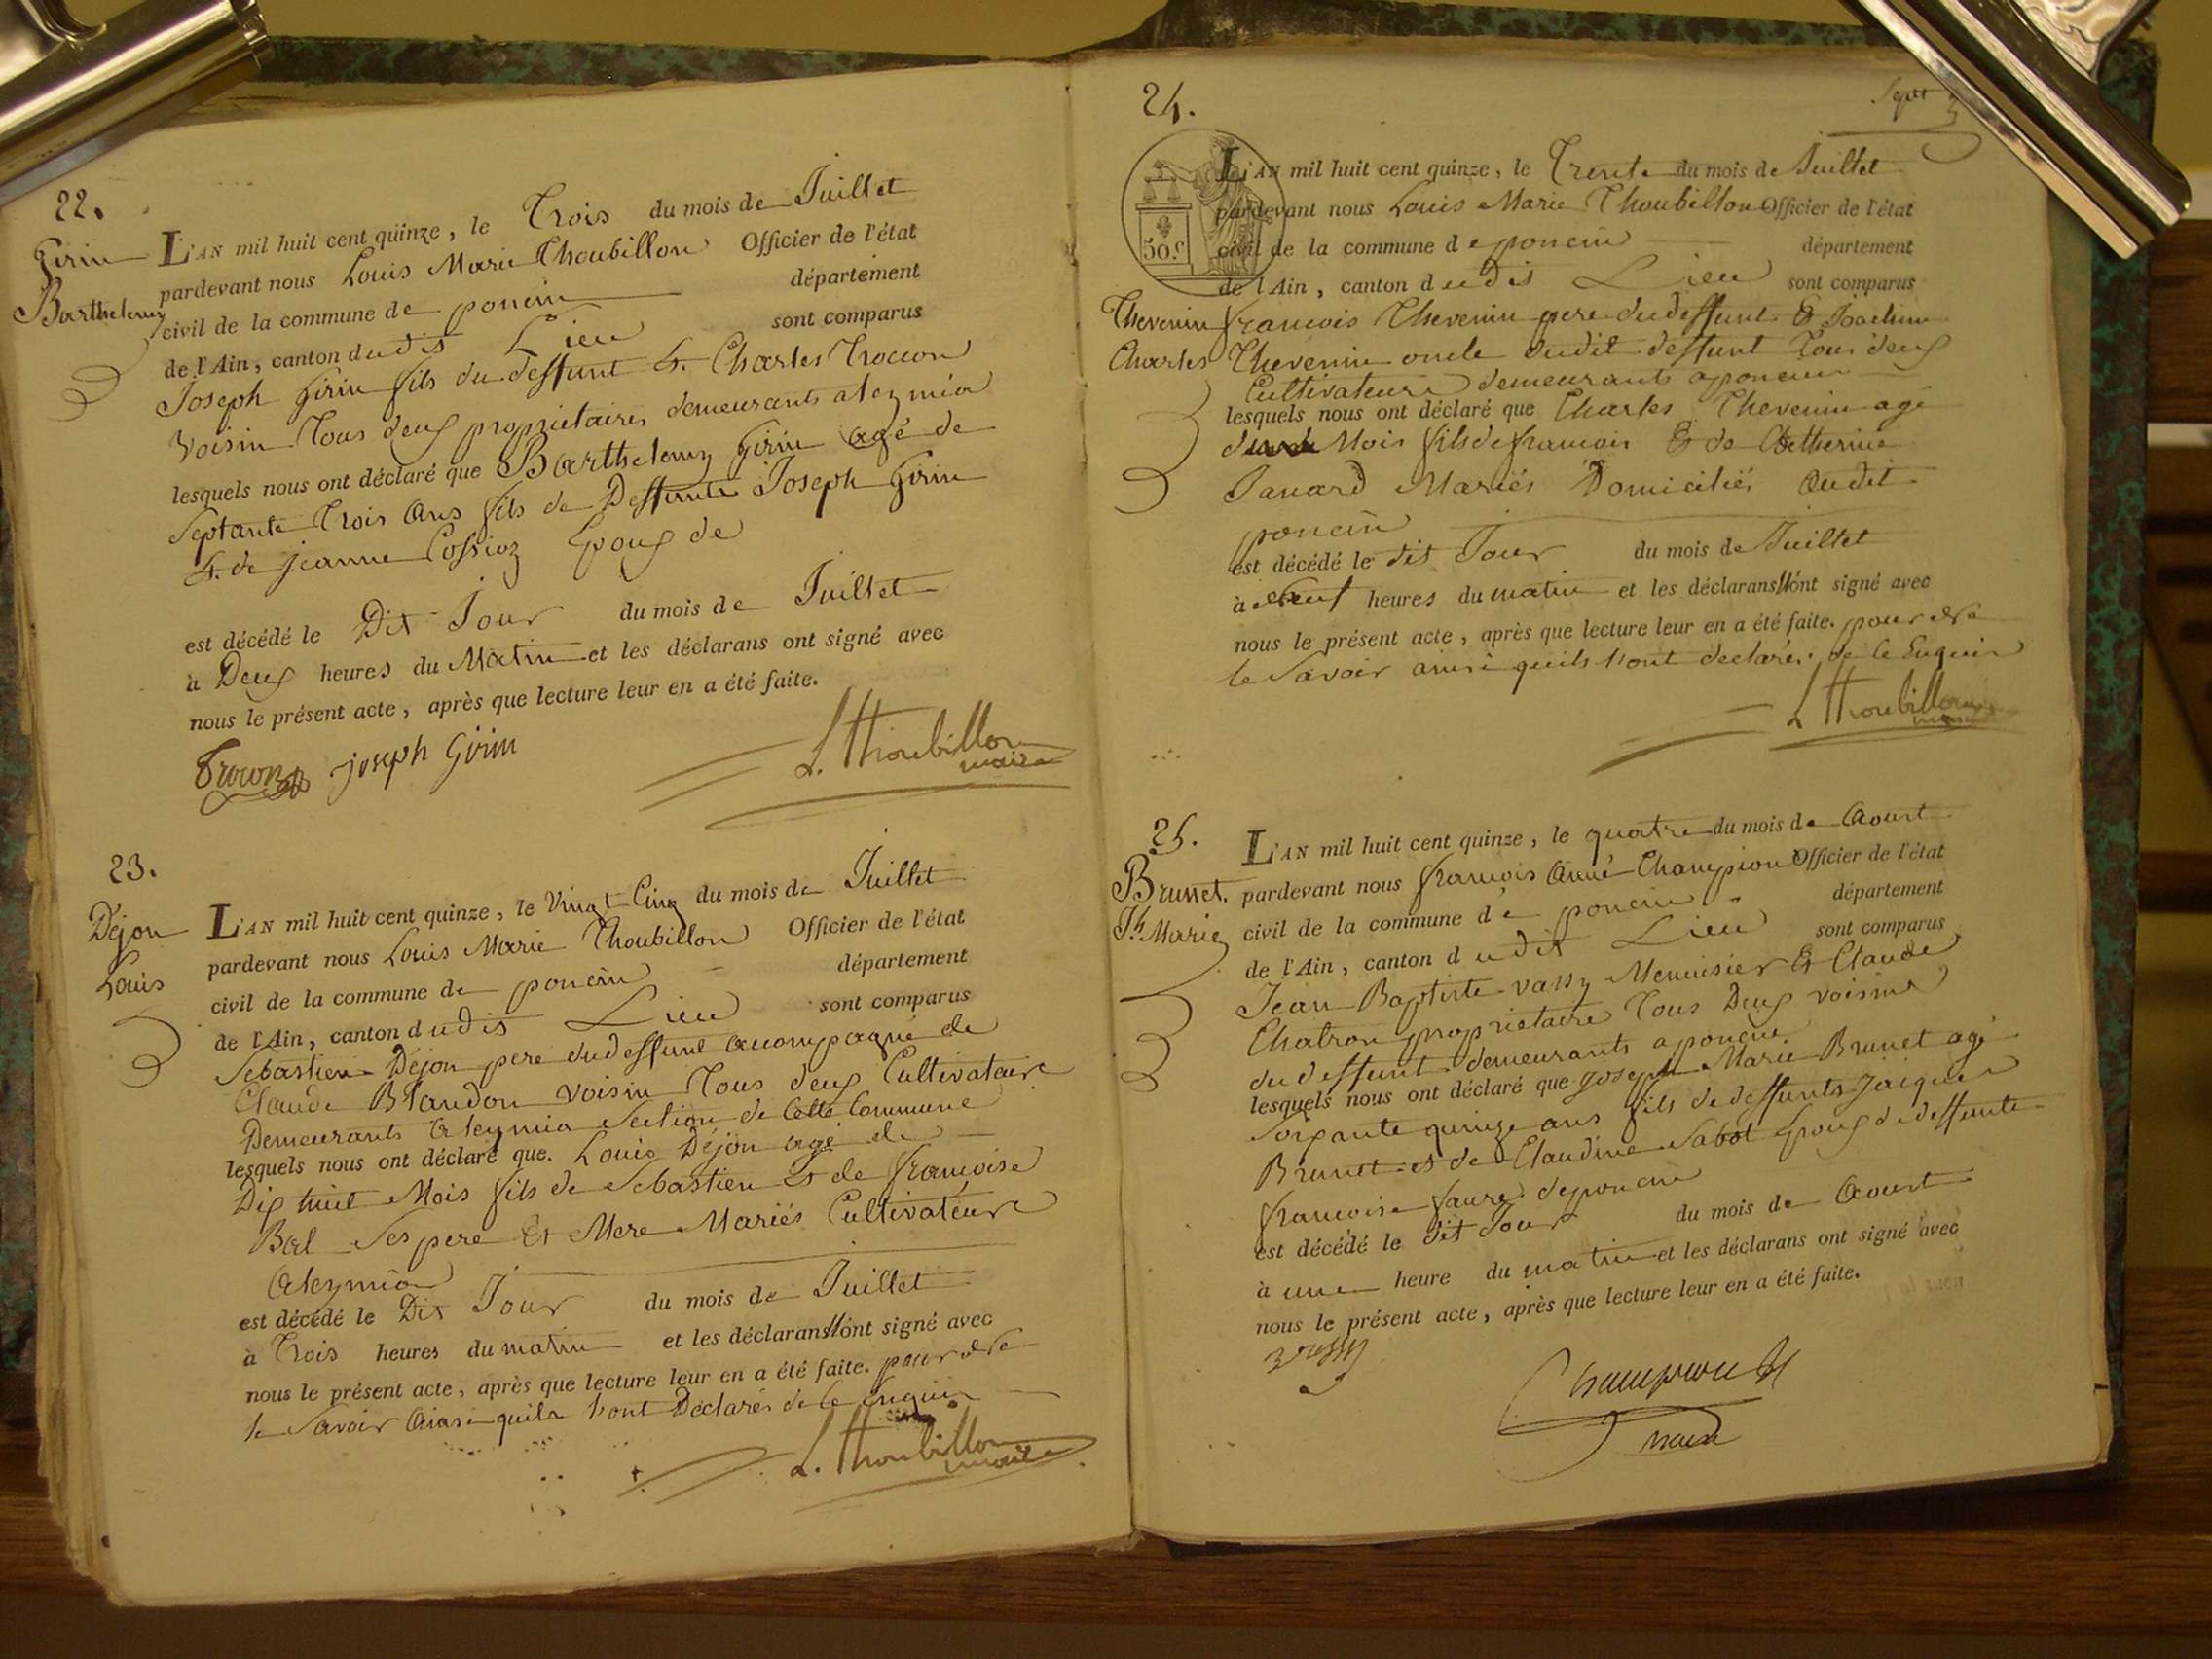 22.
Girin
Barthelemy
L'AN mil huit cent quinze, le Trois du mois de Juillet
pardevant nous Louis Marie Thoubillon Officier de l'état
civil de la commune de poncin département
de l'Ain, canton dudit Lieu sont comparus
Joseph Girin fils du deffunt & Charles Trocon
voisin Tous deux proprietaires demeurants aleymia
lesquels nous ont déclaré que Barthelemy Girin agé de
septante Trois ans fils de Deffunts Joseph Girin
&. de jeanne Cossioz Epoux de
est décédé le Dit Jour du mois de Juillet
à Deux heures du Matin et les déclarans ont signé avec
nous le présent acte, après que lecture leur en a été faite.
Trocon joseph Girin L. Thoubillon
maire
23.
Déjon
Louis
L'AN mil huit cent quinze, le Vingt Cinq du mois de Juillet
pardevant nous Louis Marie Thoubillon Officier de l'état
civil de la commune de poncin département
de l'Ain, canton dudit Lieu sont comparus
Sebastien Déjon pere dudeffunt acompagné de
Claude Blandon voisin Tous deux Cultivateurs
Demeurants aleymia Section de Cette Commune
lesquels nous ont déclaré que. Louis Déjon agé de
Dix huit Mois fils de Sebastien & de françoise
Bal Ses pere Et Mere Mariés Cultivateurs
Aleymia
est décédé le Dit Jour du mois de Juillet
à Trois heures du matin et les déclarans n'ont signé avec
nous le présent acte, après que lecture leur en a été faite. pour
le Savoir Ainsi quils l'ont Déclarés de le Enquis
L. Thoubillon
maire
24.
Sept
50.c
Thevenin
Charles
L'AN mil huit cent quinze, le Trente du mois de Juillet
pardevant nous Louis Marie Thoubillon Officier de l'état
civil de la commune de poncin département
de l'Ain, canton dudit Lieu sont comparus
francois Thevenin pere dudeffunt & Joachim
Thevenin oncle dudit deffunt Tous deux
Cultivateurs demeurants aponcin
lesquels nous ont déclaré que Charles Thevenin agé
Mois fils de francois & de Catherine
Janard Mariés Domiciliés Audit
poncin
est décédé le dit Jour du mois de Juillet
à heures du matin et les déclarans n'ont signé avec
nous le présent acte, après que lecture leur en a été faite. pour
le Savoir ainsi quils l'ont declarés de le Enquis
L Thoubillon
maire
25.
Brunet.
Jh Marie
L'AN mil huit cent quinze, le quatre du mois de Aoust
pardevant nous françois Aimé Champion Officier de l'état
civil de la commune de poncin département
de l'Ain, canton dudit Lieu sont comparus
Jean Baptiste vassy Menuisier & Claude
Chatron proprietaire Tous Deux voisins
du deffunt demeurants a poncin
lesquels nous ont déclaré que joseph Marie Brunet agé
Soixante quinze ans fils de deffunts Jacques
Brunet et de Claudine Sabot Epoux de deffunte
francoise faure deponcin
est décédé le dit Jour du mois de Aoust
à une heure du matin et les déclarans ont signé avec
nous le présent acte, après que lecture leur en a été faite.
vassy
Champion
maire